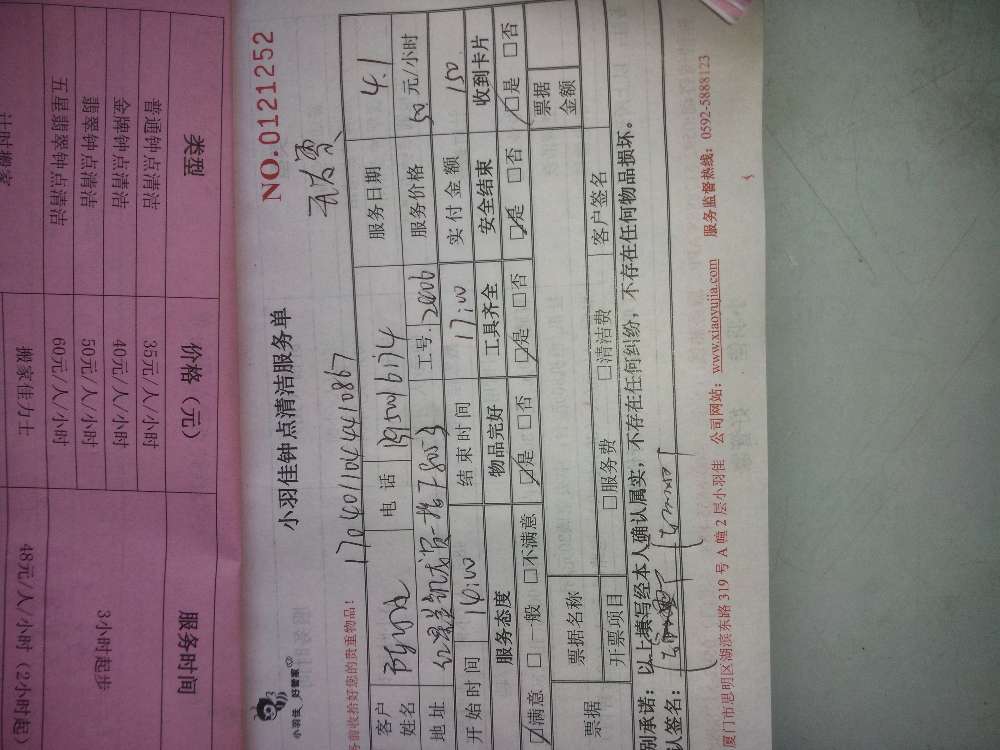 小羽佳 好管家
小羽佳钟点清洁服务单
NO.0121252
务前收拾好您的贵重物品!
170401104410867
客户姓名
电 话
服务日期 4.1
地址
工号 2806
服务价格 50 元/小时
开始时间 14:00
结束时间 17:00
实付金额 150
服务态度 物品完好 工具齐全 安全结束 收到卡片
☑满意 □ 一般 □不满意 ☑是 □否 ☑是 □否 ☑是 □否 ☑是 □否
票据 票据名称 票据金额
开票项目 □服务费 □清洁费 客户签名
别承诺:以上填写经本人确认属实,不存在任何纠纷,不存在任何物品损坏。
认签名:
厦门市思明区湖滨东路 319 号 A 幢 2 层小羽佳 公司网站:www.xiaoyujia.com 服务监督热线:0592-5888123
类型 价格(元) 服务时间
普通钟点清洁 35元/人/小时
金牌钟点清洁 40元/人/小时
翡翠钟点清洁 50元/人/小时
五星翡翠钟点清洁 60元/人/小时
3小时起步
搬家佳力士 48元/人/小时(2小时起)